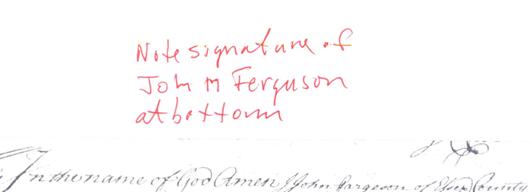 Note signature of
John M Ferguson
at bottom
In the name of God Amen I John Fargeson of